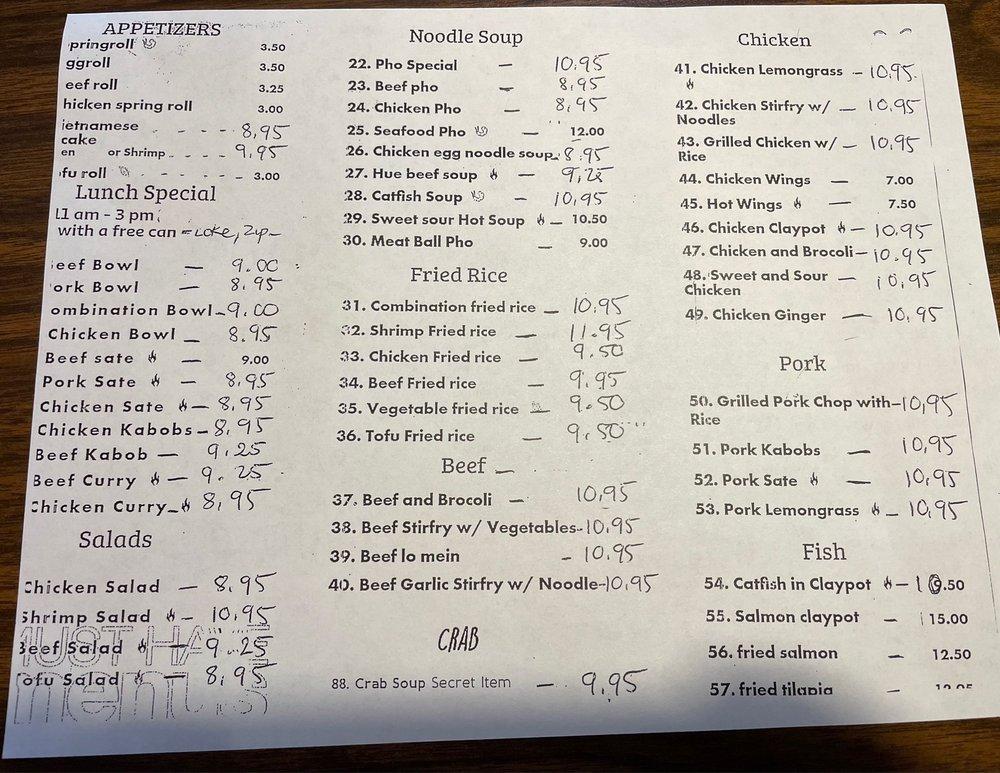 APPETIZERS
pringroll 3.50
ggroll 3.50
eef roll 3.25
hicken spring roll 3.00
ietnamese - - - - 8,95
cake
en or Shrimp - - - - 9,95
fu roll - - - - 3.00
Lunch Special
11 am - 3 pm
with a free can = coke,
eef Bowl — 9.00
ork Bowl — 8.95
ombination Bowl - 9.00
Chicken Bowl — 8.95
Beef sate — 9.00
Pork Sate — 8,95
Chicken Sate — 8,95
Chicken Kabobs - 8,95
Beef Kabob — 9.25
Beef Curry — 9.25
Chicken Curry - 8,95
Salads
Chicken Salad — 8.95
Shrimp Salad — 10,95
Beef Salad — 9.25
ofu Salad — 8,95
MUST HA
menus
Noodle Soup
22. Pho Special — 10.95
23. Beef pho — 8,95
24. Chicken Pho — 8,95
25. Seafood Pho — 12.00
26. Chicken egg noodle soup - 8.95
27. Hue beef soup — 9,25
28. Catfish Soup — 10,95
29. Sweet sour Hot Soup — 10.50
30. Meat Ball Pho — 9.00
Fried Rice
31. Combination fried rice — 10,95
32. Shrimp Fried rice — 11.95
33. Chicken Fried rice — 9.50
34. Beef Fried rice — 9.95
35. Vegetable fried rice — 9.50
36. Tofu Fried rice — 9.50
Beef
37. Beef and Brocoli — 10,95
38. Beef Stirfry w/ Vegetables - 10,95
39. Beef lo mein - 10.95
40. Beef Garlic Stirfry w/ Noodle - 10,95
CRAB
88. Crab Soup Secret Item — 9,95
Chicken
41. Chicken Lemongrass - 10,95
42. Chicken Stirfry w/ — 10,95
Noodles
43. Grilled Chicken w/ — 10,95
Rice
44. Chicken Wings — 7.00
45. Hot Wings — 7.50
46. Chicken Claypot — 10,95
47. Chicken and Brocoli - 10.95
48. Sweet and Sour — 10,95
Chicken
49. Chicken Ginger — 10,95
Pork
50. Grilled Pork Chop with - 10,95
Rice
51. Pork Kabobs — 10,95
52. Pork Sate — 10,95
53. Pork Lemongrass — 10,95
Fish
54. Catfish in Claypot — 10.50
55. Salmon claypot — 15.00
56. fried salmon — 12.50
57. fried tilapia —